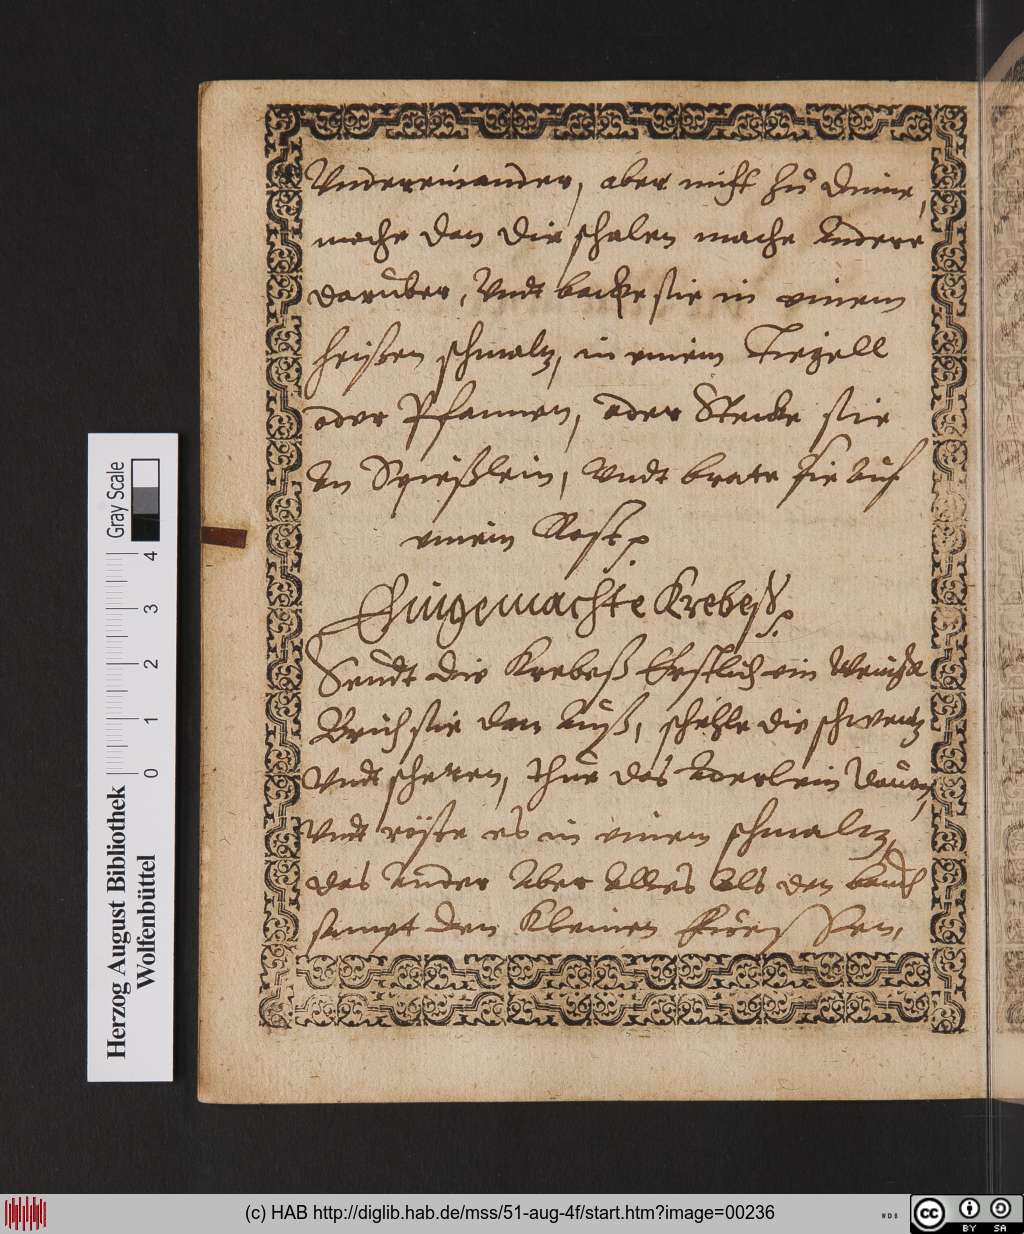 Undereinander, aber nicht zu dinne,
mache dan die schalen mache andere
daruber, Undt backe sie in einem
heißen schmaltz, in einem Tiegell
oder Pfannen, oder Stecke sie
an Spießlein, Undt brate sie auf
einem Rost.
Eingemachte Krebeß.
Seudt die Krebeß Erstlich ein Wenig
Brich sie dan auß, schehle die schwentz
Undt scheren, thue das aderlein davon,
Undt röste es in einem schmaltz,
das ander aber alles als den bauch
sampt den Kleinen Füessen,
Gray Scale
4
3
2
1
0
Herzog August Bibliothek
Wolfenbüttel
(c) HAB http://diglib.hab.de/mss/51-aug-4f/start.htm?image=00236
WDB
cc BY SA